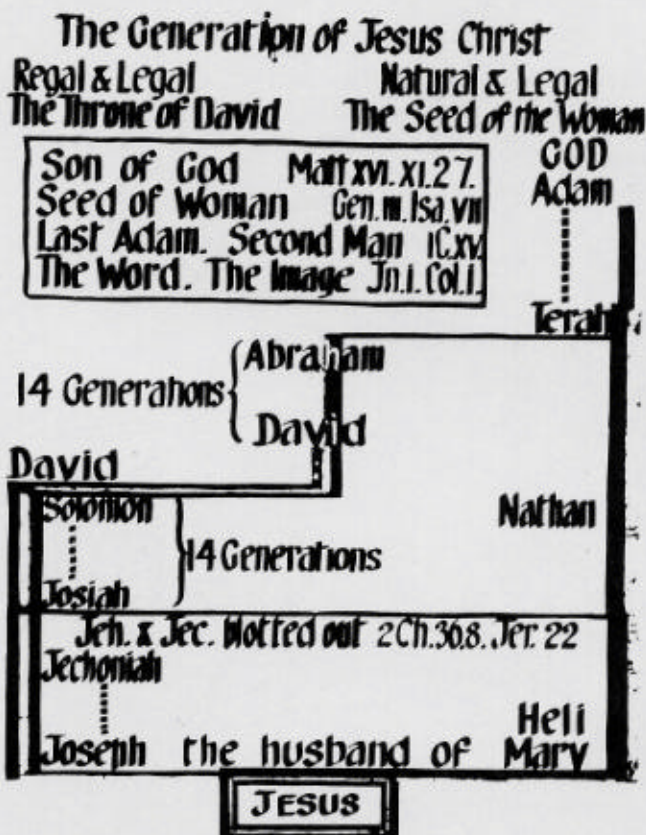 The Generation of Jesus Christ
Regal & Legal
The Throne of David
Natural & Legal
The Seed of the Woman
Son of God Matt xvi. xi. 27.
Seed of Woman Gen. iii. Isa. vii
Last Adam. Second Man 1C. xv.
The Word. The Image Jn. i. Col. i.
GOD
Adam
Terah
Abraham
14 Generations
David
David
Solomon
Nathan
14 Generations
Josiah
Jeh. & Jec. blotted out 2 Ch. 36.8. Jer. 22
Jechoniah
Heli
Joseph the husband of Mary
JESUS